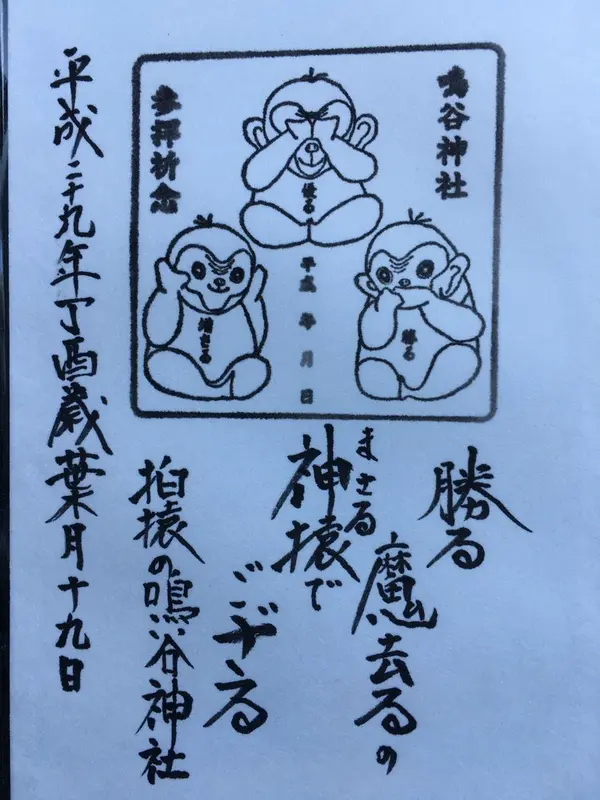 鳴谷神社
優る
勝る
増さる
平成 年 月 日
参拝祈念
勝る
魔去るの
まさる
神猿で
ござる
狛猿の鳴谷神社
平成二十九年丁酉歳葉月十九日